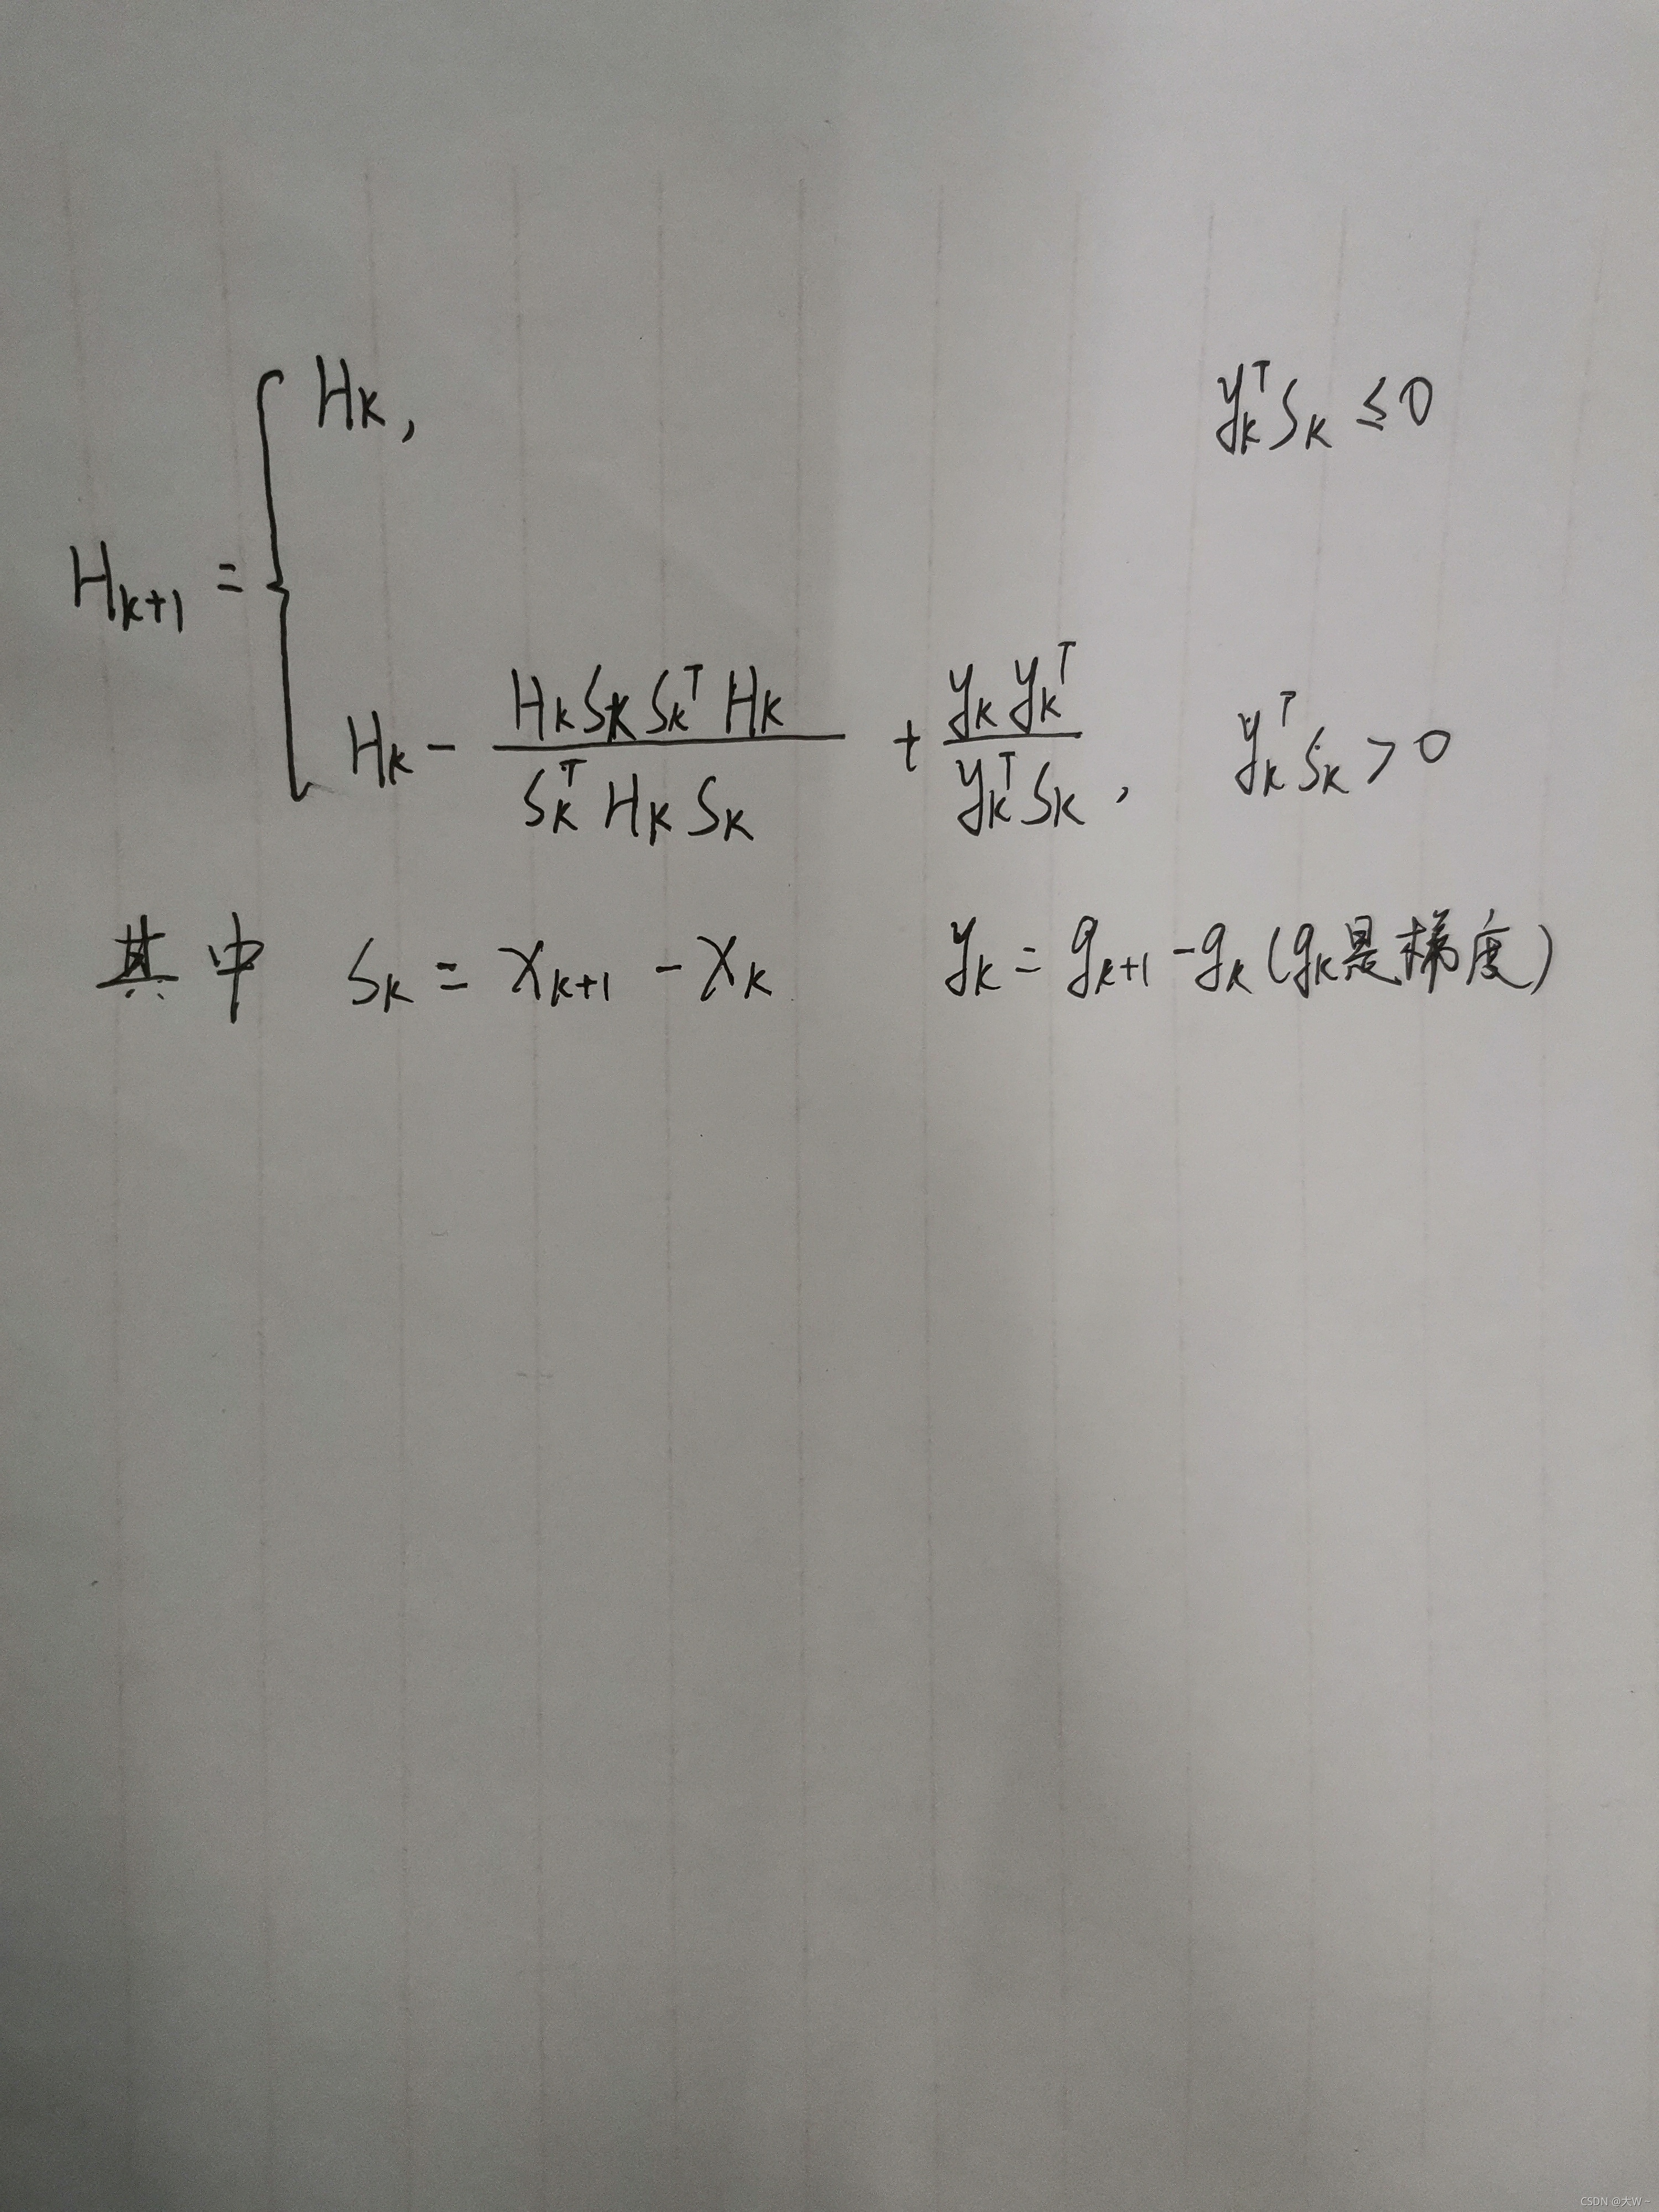 H_{k+1} = { H_k, y_k^T s_k ≤ 0
H_k - \frac{H_k s_k s_k^T H_k}{s_k^T H_k s_k} + \frac{y_k y_k^T}{y_k^T s_k}, y_k^T s_k > 0
其中 s_k = x_{k+1} - x_k y_k = g_{k+1} - g_k (g_k是梯度)
CSDN @大W~